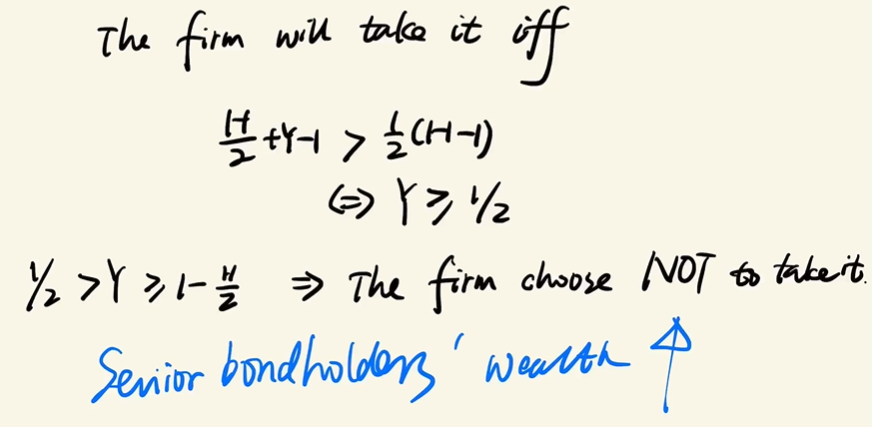 The firm will take it iff
H/2 +Y-1 > 1/2 (H-1)
<=> Y ≥ 1/2
1/2 > Y ≥ 1 - H/2 ⇒ The firm choose NOT to take it.
Senior bondholders' wealth ↑